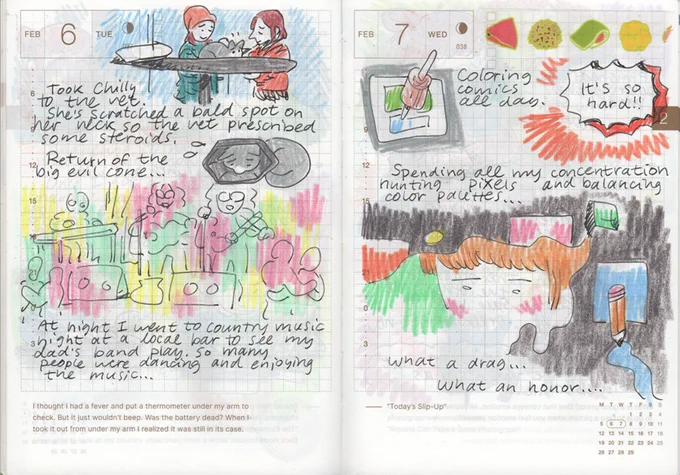 FEB 6 TUE
Took Chilly
to the vet.
She's scratched a bald spot on
her neck so the vet prescribed
some steroids.
Return of the
big evil cone...
At night I went to country music
night at a local bar to see my
dad's band play. So many
people were dancing and enjoying
the music...
I thought I had a fever and put a thermometer under my arm to
check. But it just wouldn't beep. Was the battery dead? When I
took it out from under my arm I realized it was still in its case.
6
9
12
15
3
FEB 7 WED
038
Coloring
comics
all day.
It's so
hard!!
2
Spending all my concentration
hunting pixels and balancing
color palettes...
what a drag...
What an honor....
"Today's Slip-Up"
9
12
15
0
3
M T W T F S S
1 2 3 4
5 6 7 8 9 10 11
12 13 14 15 16 17 18
19 20 21 22 23 24 25
26 27 28 29